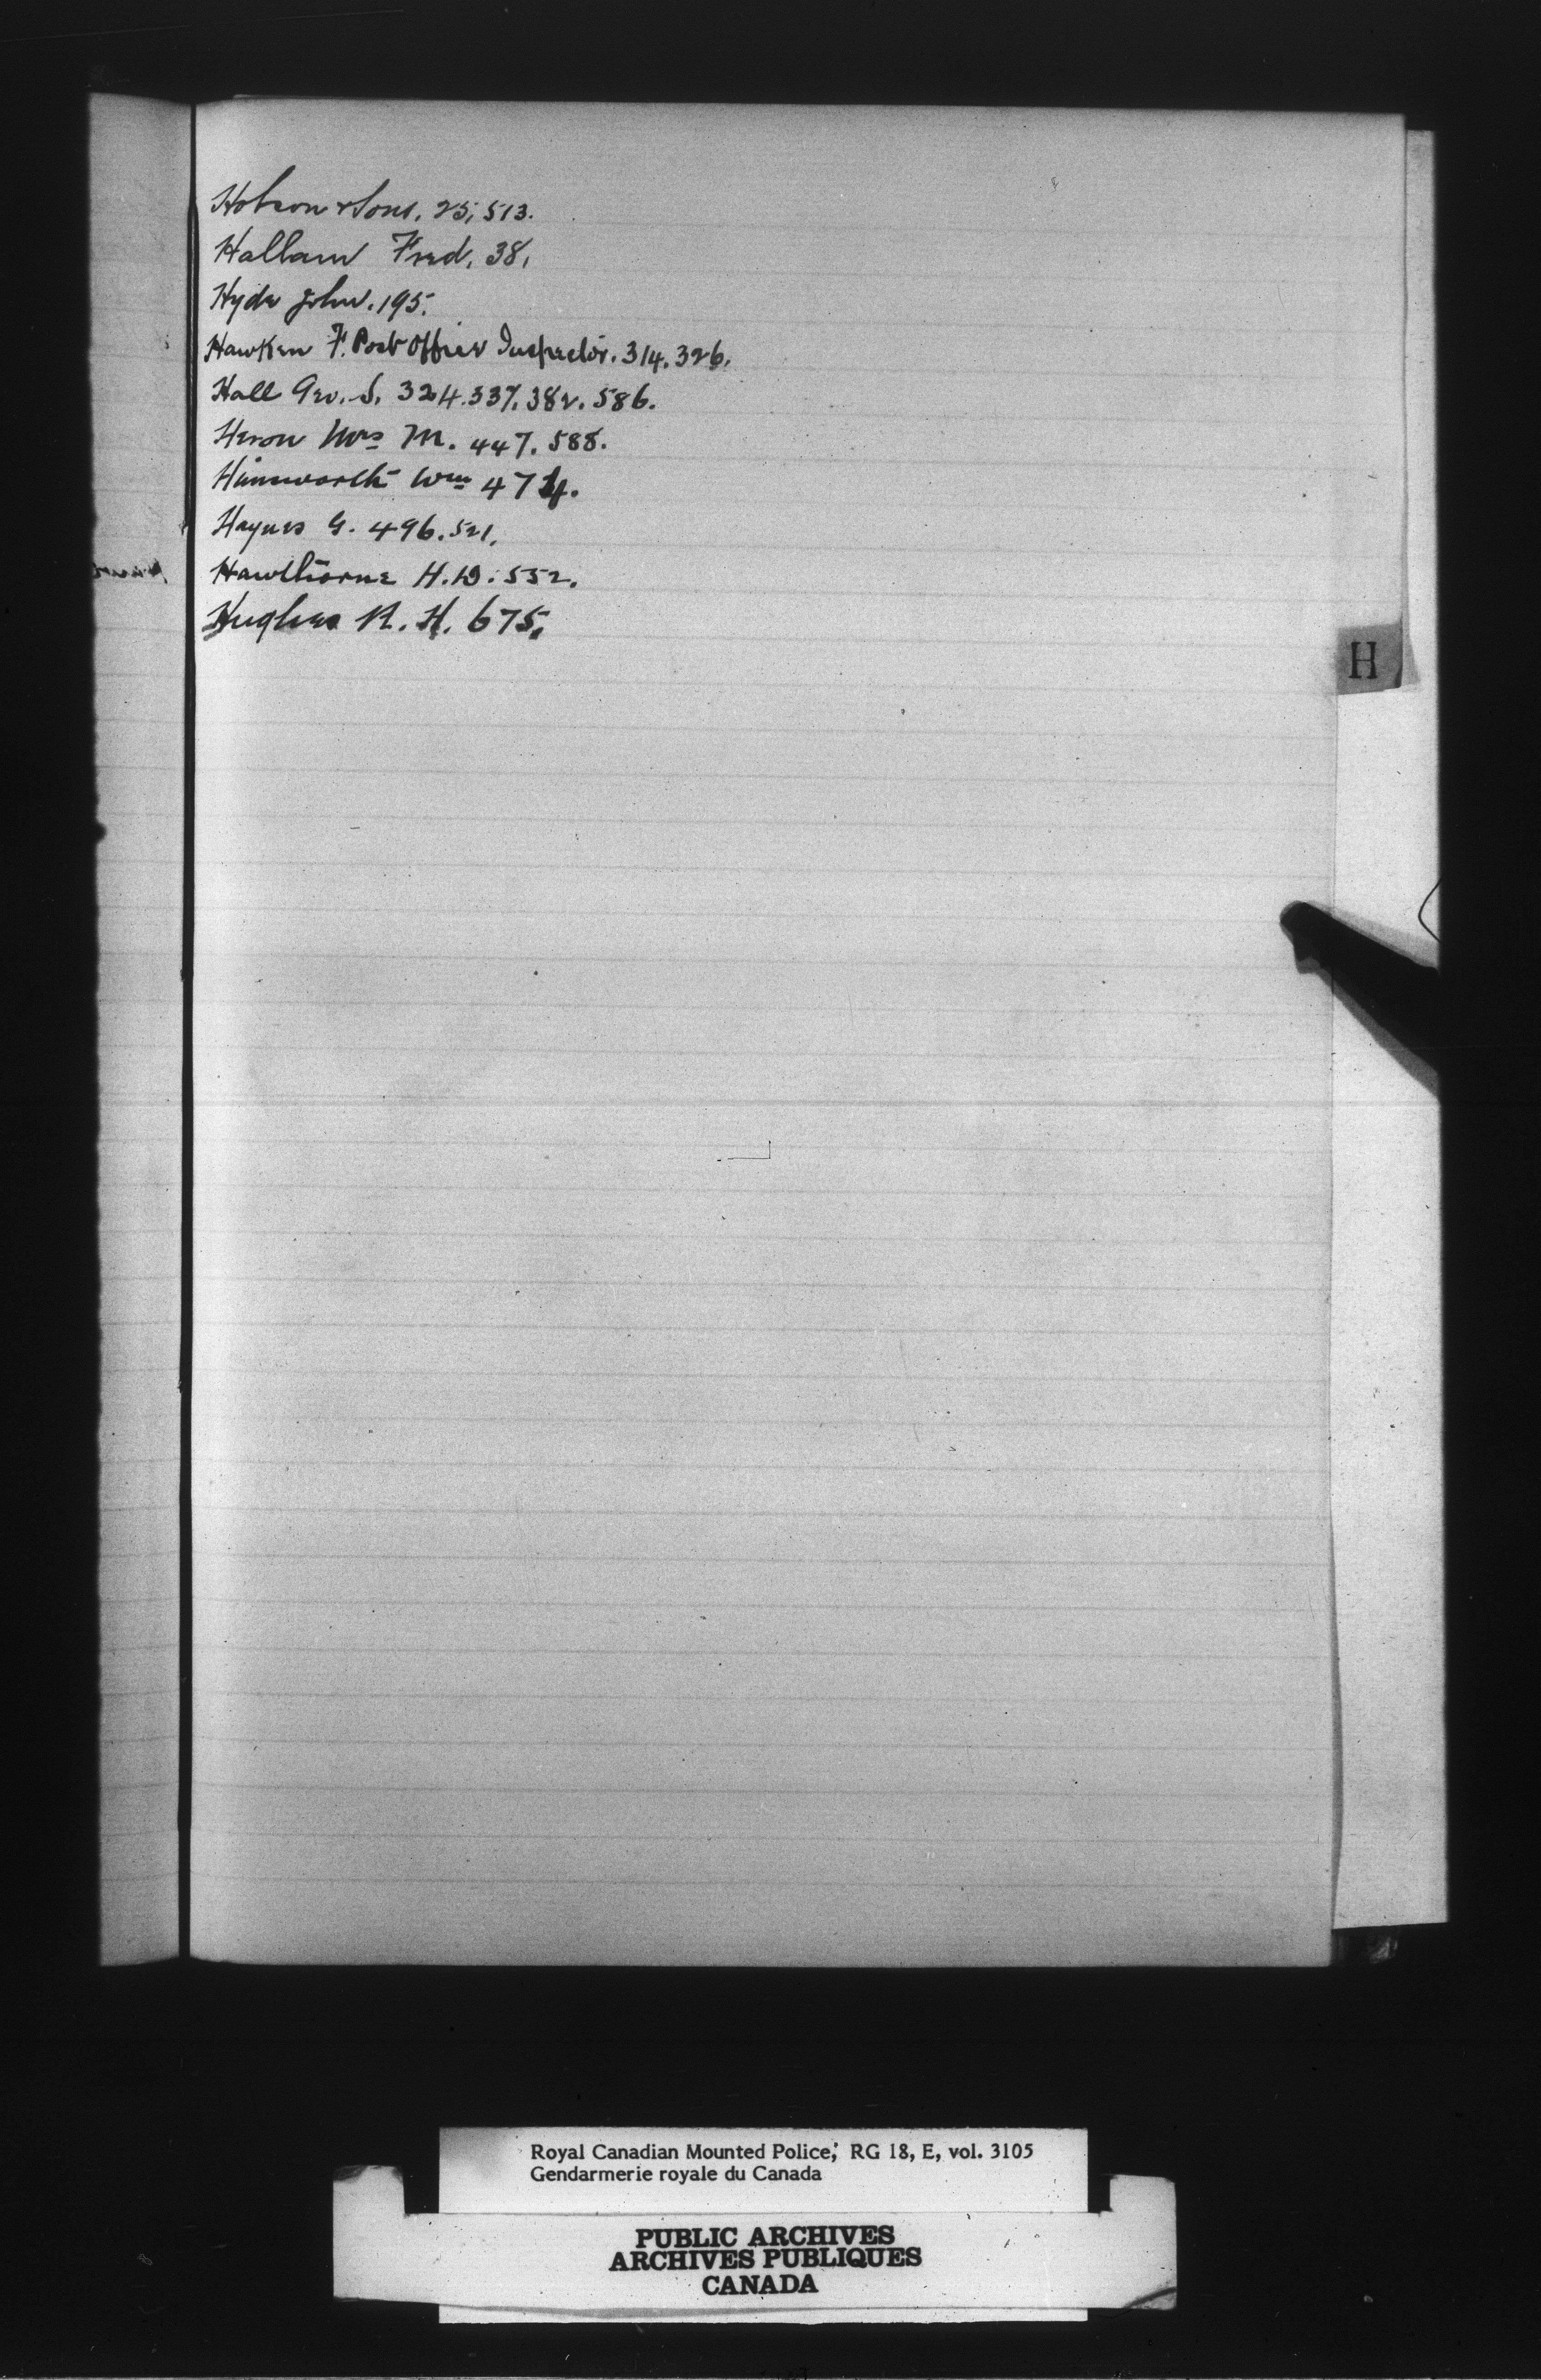 Hobson & Sons. 25, 513.
Hallam Fred. 38,
Hyde John. 195.
Hawken F. Post Office Inspector. 314. 326.
Hall Geo. S. 324. 337. 382. 586.
Heron Mrs M. 447. 588.
Himsworth Wm 474.
Haynes G. 496. 521.
Hawthorne H. D. 552.
Hughes R. H. 675.
H
Royal Canadian Mounted Police, RG 18, E, vol. 3105
Gendarmerie royale du Canada
PUBLIC ARCHIVES
ARCHIVES PUBLIQUES
CANADA